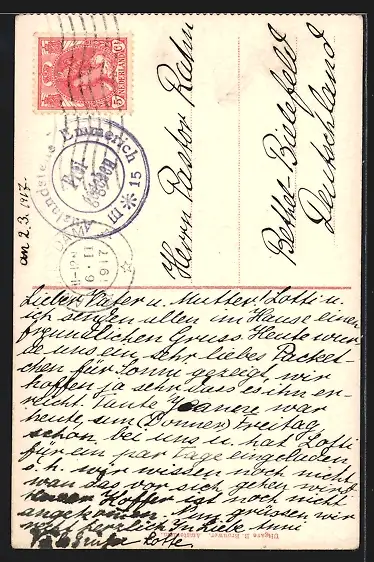 5 Ct
NEDERLAND
Auslandstelle Emmerich
Frei
gegeben
III * 15
6.II
1917
an 2.3.1917.
Herrn Pastor Rahn
Bethel-Bielefeld
Deutschland
Lieber Vater u. Mutter! Lotti u.
ich senden allen im Hause einen
freundlichen Gruss. Heute wur
de uns ein sehr liebes Packet-
chen für Tommi gezeigt, wir
hoffen ja sehr dass es ihn er-
reicht. Tante war
heute, um (Donner) Freitag
schon bei uns u. hat Lotti
für ein par Tage eingeladen
d.h. wir wissen noch nicht
wan das vor sich gehen wird
Koffer ist noch nicht
angekommen. Nun grüssen wir
herzlich In Liebe
Lotte.
Uitgave B. Brouwer, Amsterdam.